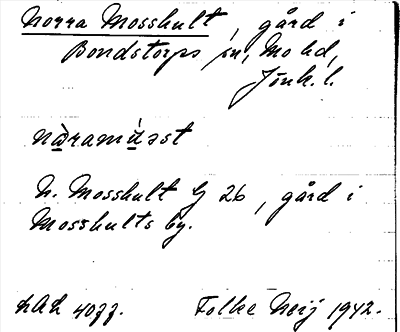 Norra Mosshult, gård i
Bondstorps sn, Mo hd,
Jönk. l.
N. Mosshult G 26, gård i
Mosshults by.
LAL 4077.    Folke Neij 1942.